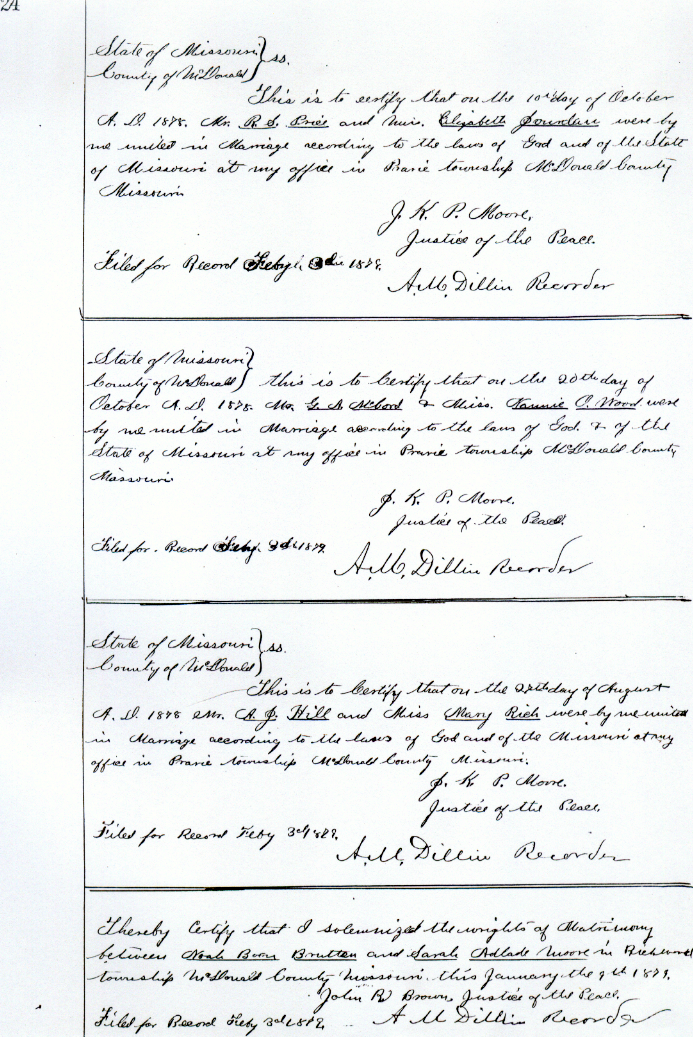 24
State of Missouri } ss.
County of McDonald
This is to certify that on the 10th day of October
A. D. 1878. Mr. R. S. Price and Miss. Elizabeth were by
me united in Marriage according to the laws of God and of the State
of Missouri at my office in Prarie township McDonald County
Missouri
J. K. P. Moore.
Justice of the Peace.
Filed for Record Feby. 3d 1879.
A. M. Dillin Recorder
State of Missouri }
County of McDonald } this is to Certify that on the 20th day of
October A. D. 1878. Mr. G. A. McCord & Miss. Nannie C. Wood were
by me united in Marriage according to the laws of God & of the
State of Missouri at my office in Prarie township McDonald County
Missouri
J. K. P. Moore.
Justice of the Peace.
Filed for Record Feby. 3d 1879.
A. M. Dillin Recorder
State of Missouri } ss.
County of McDonald
This is to Certify that on the day of August
A. D. 1878 Mr. A. J. Hill and Miss Mary Rich were by me united
in Marriage according to the laws of God and of the Missouri at my
office in Prarie township McDonald County Missouri.
J. K. P. Moore.
Justice of the Peace
Filed for Record Feby 3d 1879.
A. M. Dillin Recorder
I hereby Certify that I solemnized the wrights of Matrimony
between Noah and Sarah Adlade Moore in
township McDonald County Missouri. this January the 9th 1879.
John R. Brown, Justice of the Peace.
Filed for Record Feby 3d 1879. A M Dillin Recorder